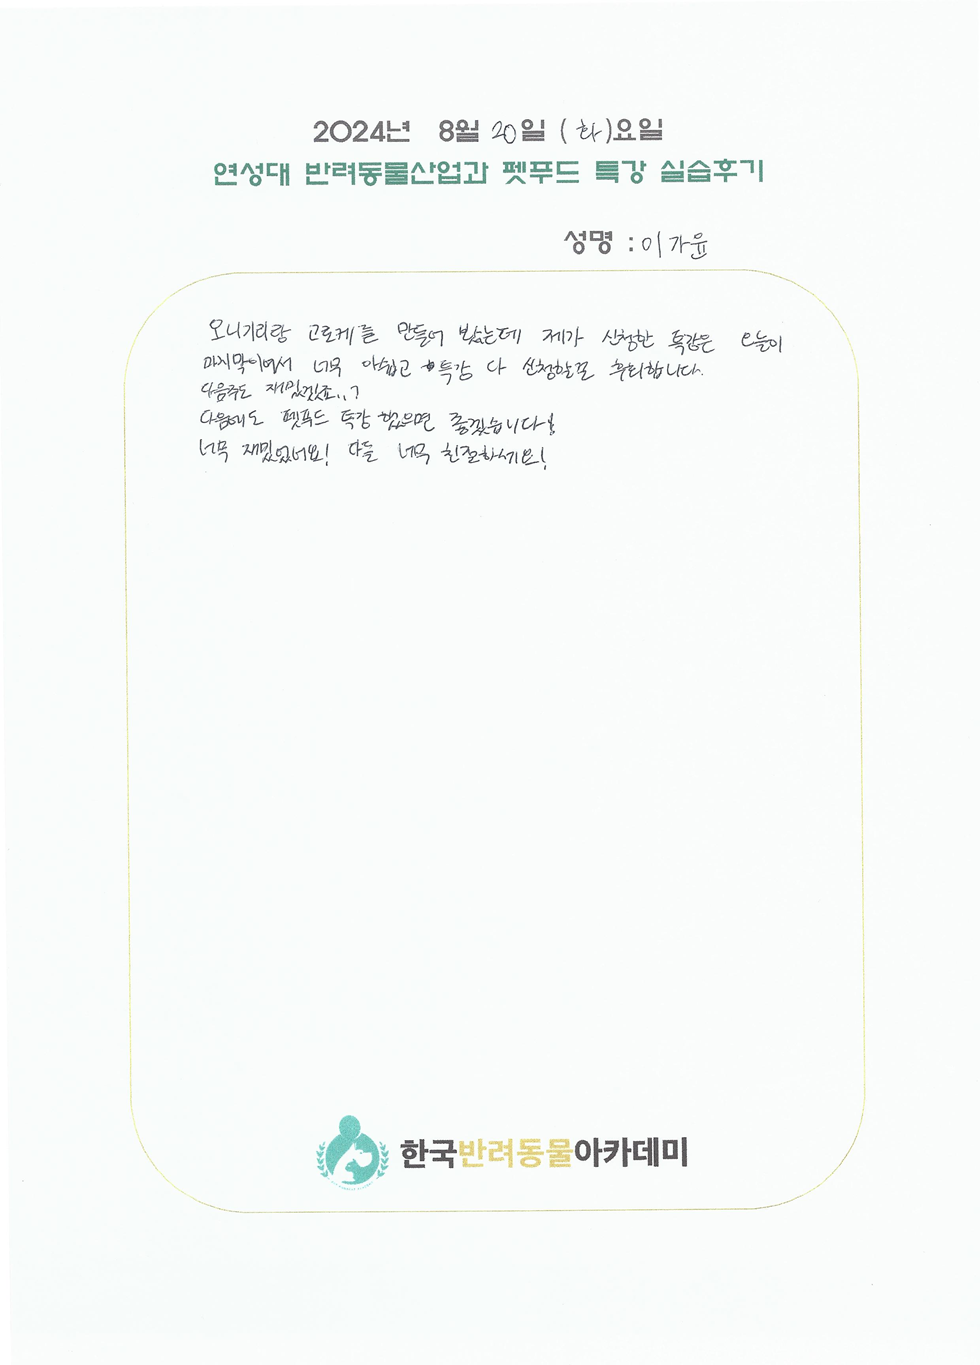 2024년 8월 20일 (화)요일
연성대 반려동물산업과 펫푸드 특강 실습후기
성명 : 이가윤
오니기리랑 고로케를 만들어 봤는데 제가 신청한 특강은 오늘이
마지막이여서 너무 아쉽고 특강 다 신청할껄 후회합니다.
다음주도 재밌겠죠..?
다음에도 펫푸드 특강 했으면 좋겠습니다!
너무 재밌었네요! 다들 너무 친절하세요!
한국반려동물아카데미